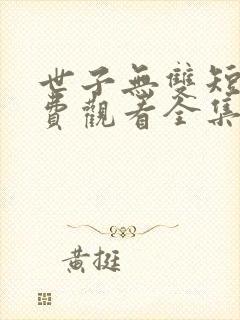 世子無雙短
費觀看全集
黃挺